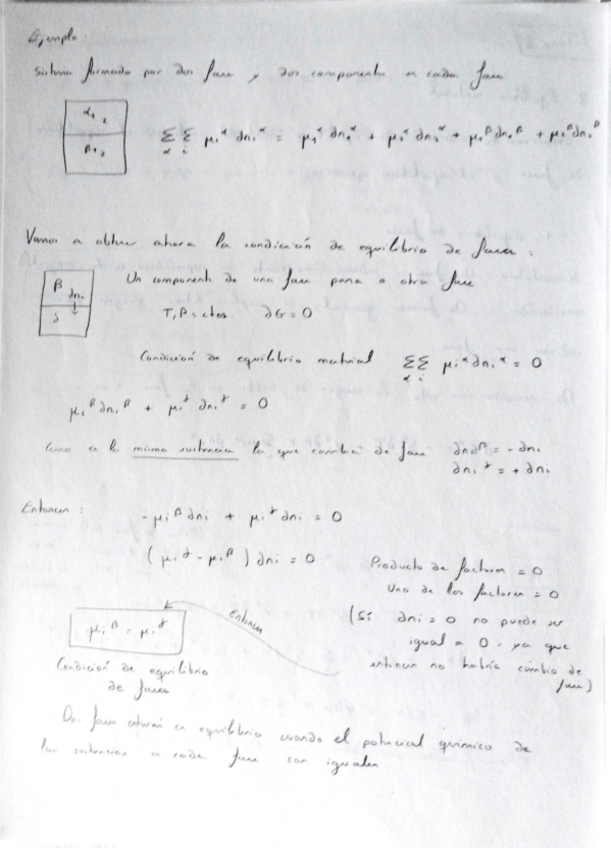 Ejemplo:
Sistema formado por dos fases y dos componentes en cada fase
α 1, 2
β 1, 2
Σ_α Σ_i μi^α dni^α = μ1^α dn1^α + μ2^α dn2^α + μ1^β dn1^β + μ2^β dn2^β
Vamos a obtener ahora la condición de equilibrio de fases:
β dni ↓
δ
Un componente de una fase pasa a otra fase
T, P = ctes dG = 0
Condición de equilibrio material Σ_α Σ_i μi^α dni^α = 0
μi^β dni^β + μi^δ dni^δ = 0
Como es la misma sustancia la que cambia de fase dni^β = - dni
dni^δ = + dni
Entonces: - μi^β dni + μi^δ dni = 0
(μi^δ - μi^β) dni = 0
Producto de factores = 0
Uno de los factores = 0
(Si dni = 0 no puede ser
igual a 0. ya que
entonces no habría cambio de
fase)
Entonces
μi^β = μi^δ
Condición de equilibrio
de fases
Dos fases estarán en equilibrio cuando el potencial químico de
las sustancias en cada fase son iguales